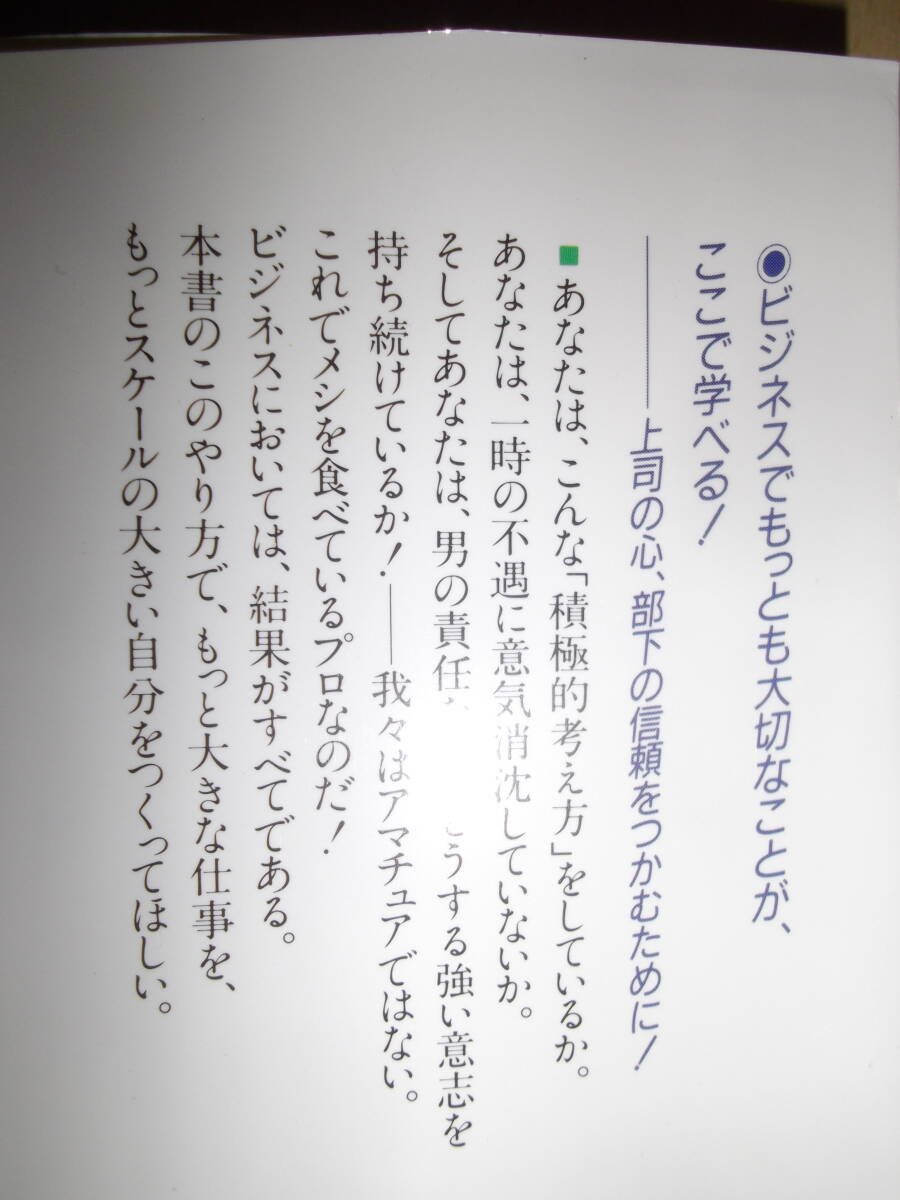 ◉ビジネスでもっとも大切なことが、
ここで学べる！
――上司の心、部下の信頼をつかむために！
■あなたは、こんな「積極的考え方」をしているか。
あなたは、一時の不遇に意気消沈していないか。
そしてあなたは、男の責任 うする強い意志を
持ち続けているか！――我々はアマチュアではない。
これでメシを食べているプロなのだ！
ビジネスにおいては、結果がすべてである。
本書のこのやり方で、もっと大きな仕事を、
もっとスケールの大きい自分をつくってほしい。